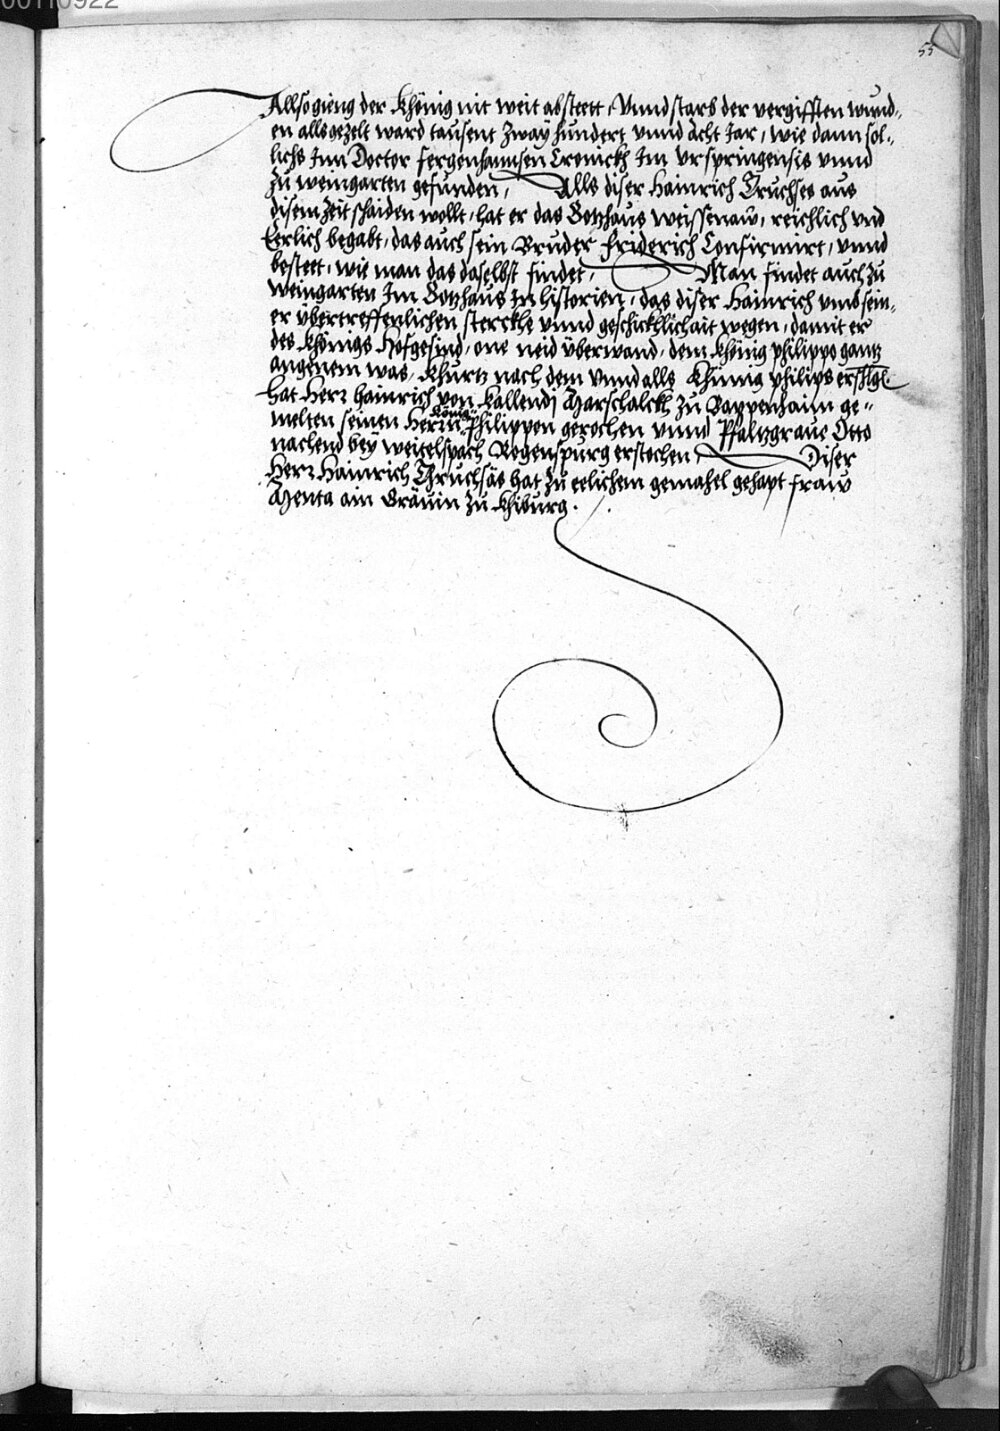 00110922
55
Allso gieng der Khönig nit weit ab steett, Vnnd starb der vergifften wund„
en alls gezelt ward tausent Zway hundert vnnd acht Jar, wie dann sol„
lichs Inn Doctor fergenhannsen Cronickh Im Vrspringensis vnnd
Zu weingarten gefunden, Alls diser Hainrich Truchses aus
disem Zeit schaiden wollt, hat er das Gotzhaus weissenaw, reichlich vnd
Eerlich begabt, das auch sein Bruder Friderich Confirmirt, vnnd
bestett, wie man das daselbst findet, Man findet auch zu
weingarten Im Gotzhaus In historien, das diser Hainrich vmb sein„
er übertreffenlichen sterckhe vnnd geschickhlichait wegen, damit er
des Khönigs Hofgesind, one neid überwand, dem Khönig philippo gantz
angenem was, Khurtz nach dem vnnd alls Khünig philips erschlgē
hat Herr Hainrich von Kallendj Marschalckh zu Bappenhaim ge„
melten seinen Herrn König Philippen gerochen vnnd Pfaltzgraue Otto
nachend bey weitelspach Regenspurg erstochen Diser
Herr Hainrich Thruchsäs hat zu eelichem gemahel gehapt fraw
Menta ain Grävin zu Khiburg.